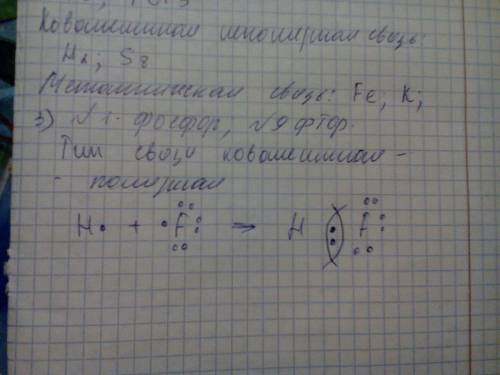 Ковалентная неполярная связь:
H₂; S₈
Металлическая связь: Fe, K;
3) √1- фосфор, √9 фтор.
Тип связи ковалентная -
- полярная
H• + •F: → H : F: